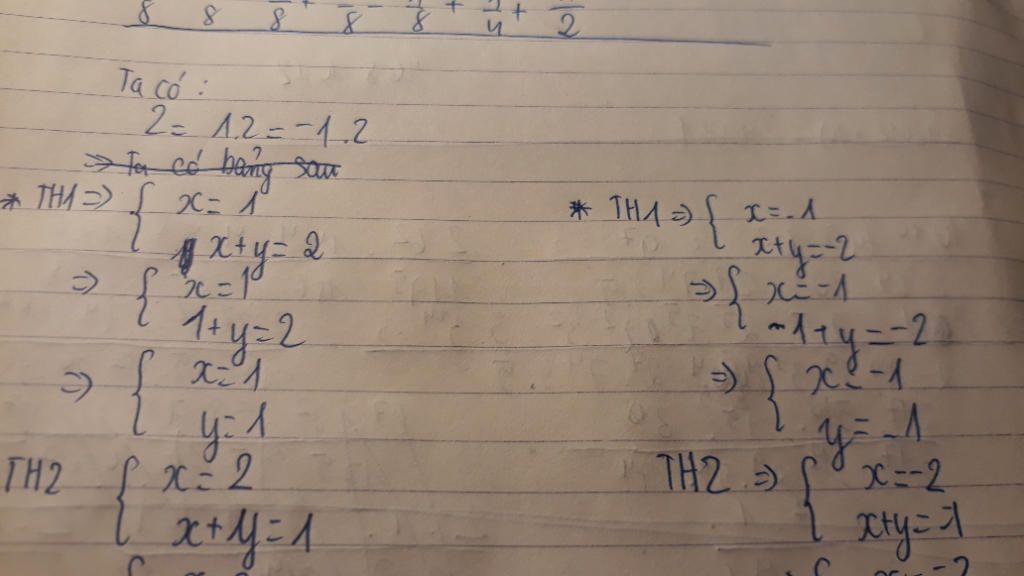 8 8 8 + 8 - 8 + 4 + 2
Ta có :
2 = 1.2 = -1.2
=> Ta có bảng sau
* TH1 => { x = 1
x+y = 2
=> { x = 1
1+y = 2
=> { x = 1
y = 1
TH2 { x = 2
x+y = 1
* TH1 => { x = -1
x+y = -2
=> { x = -1
-1+y = -2
=> { x = -1
y = -1
TH2 => { x = -2
x+y = -1